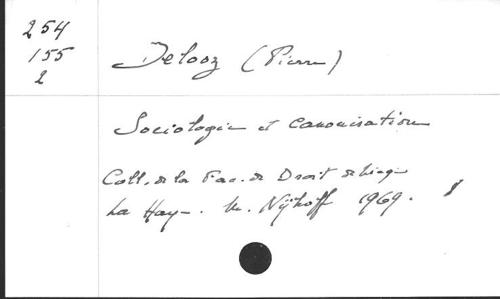 254
155
2
Delooz (Pierre)
Sociologie et canonisation
Coll. de la Fac. de Droit de Liège
La Haye. M. Nijhoff 1969.